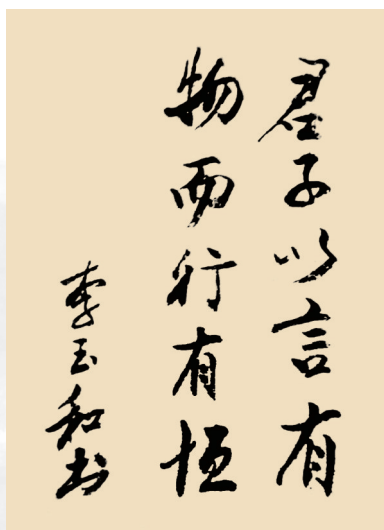 君子以言有
物而行有恒
李玉和书